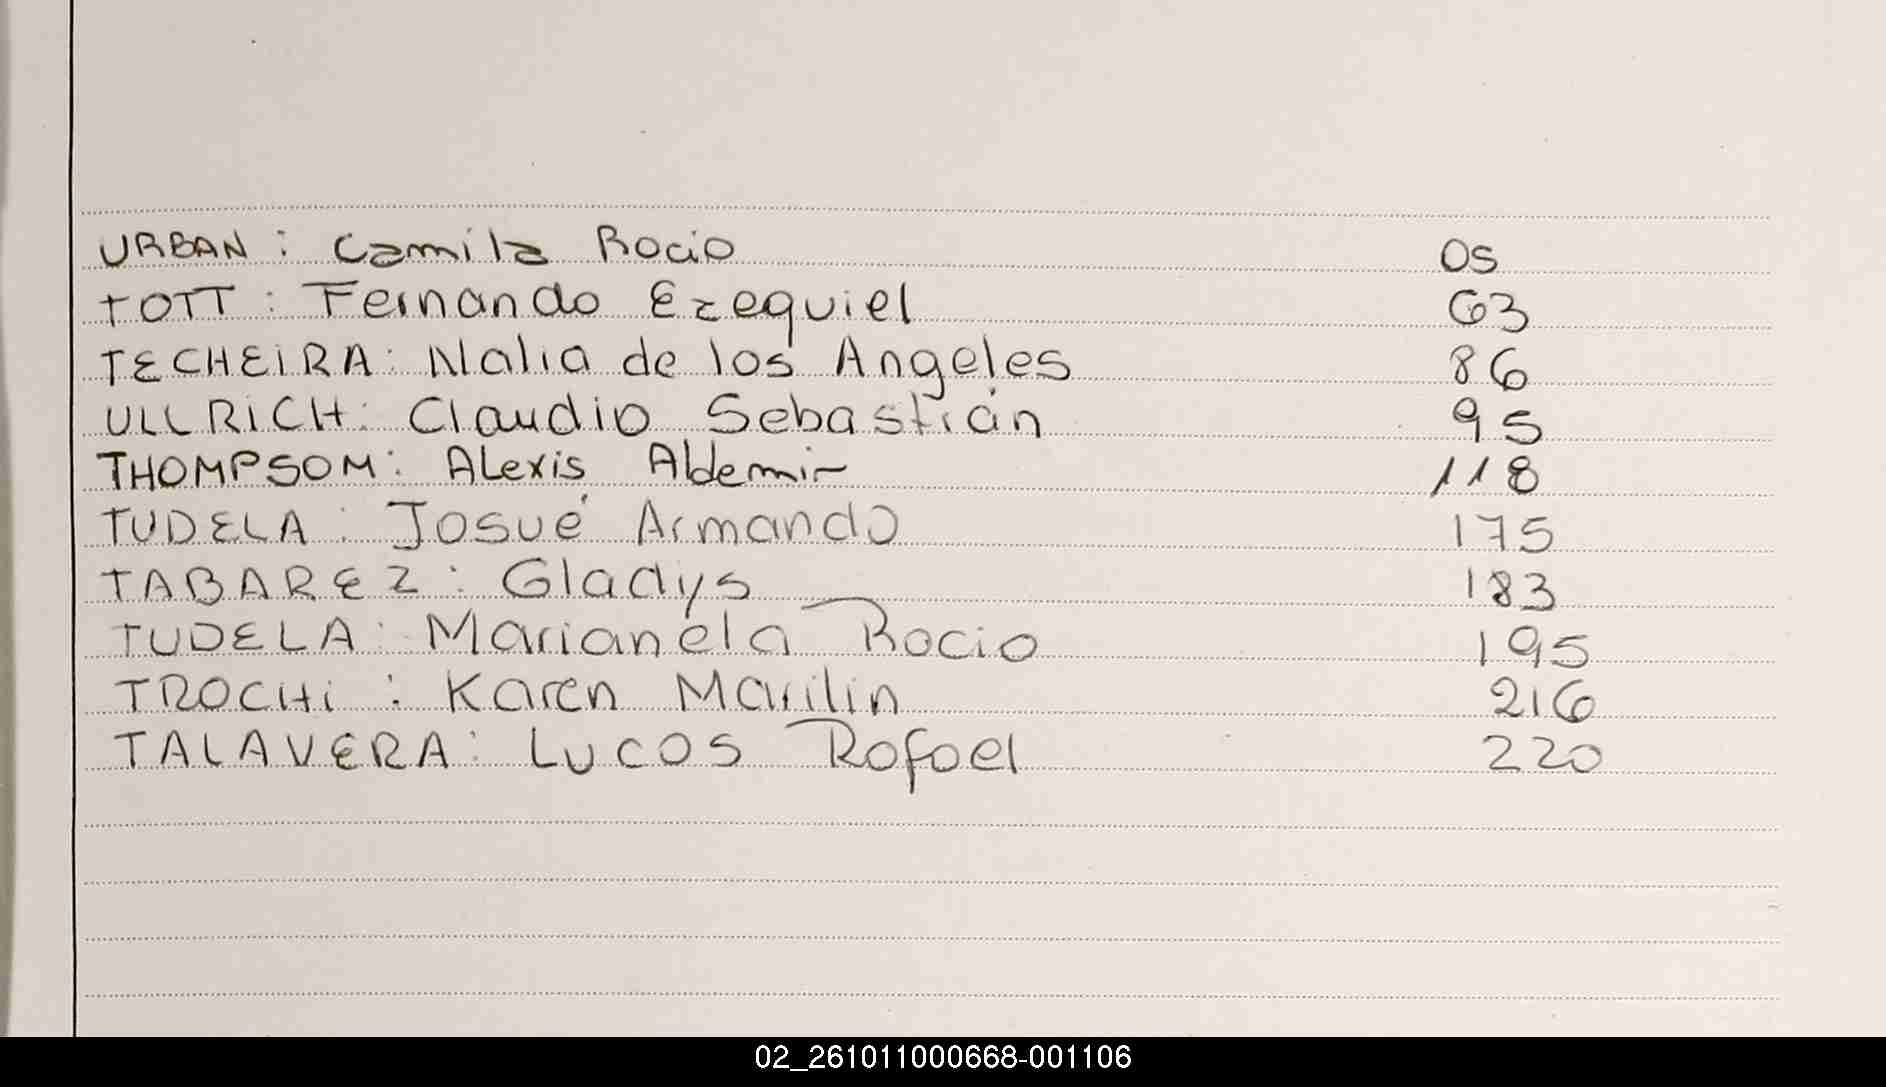 URBAN: Camila Rocio 05
TOTT: Fernando Ezequiel 63
TECHEIRA: Nalia de los Angeles 86
ULLRICH: Claudio Sebastián 95
THOMPSOM: Alexis Aldemir 118
TUDELA: Josué Armando 175
TABAREZ: Gladys 183
TUDELA: Marianela Rocio 195
TROCHi: Karen Marilin 216
TALAVERA: Lucas Rafael 220
02_261011000668-001106